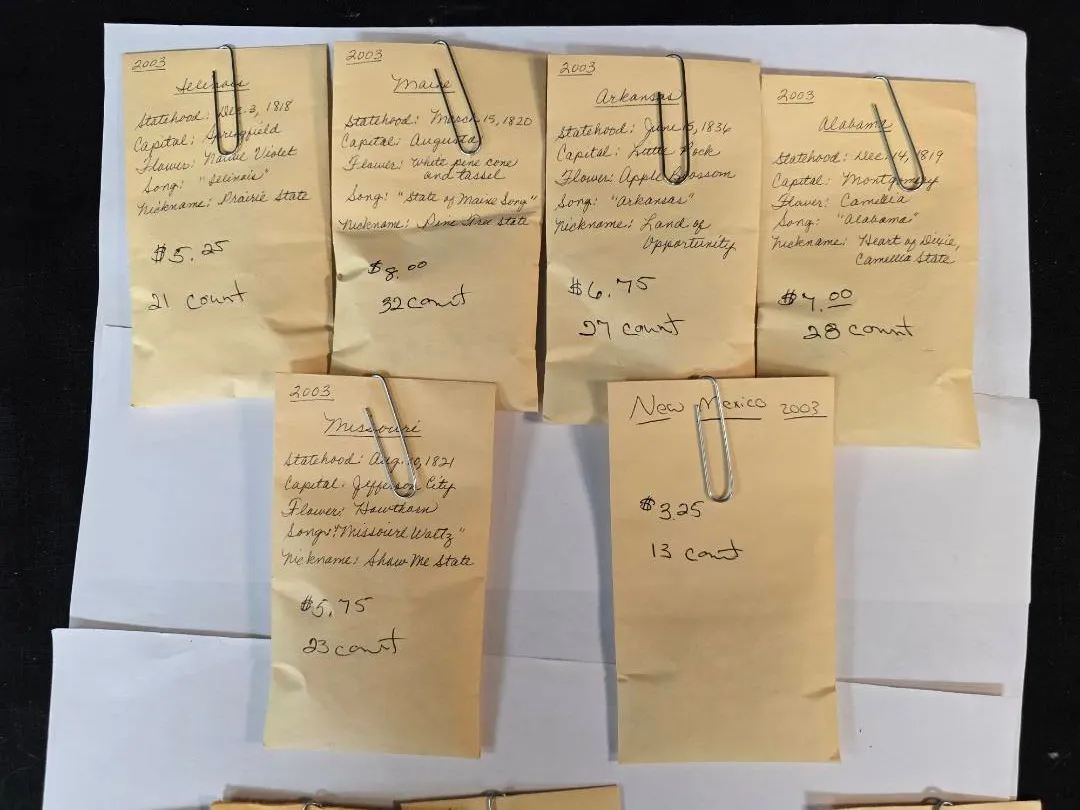 2003
Illinois
Statehood: Dec. 3, 1818
Capital: Springfield
Flower: Native Violet
Song: "Illinois"
Nickname: Prairie State
$5.25
21 count
2003
Maine
Statehood: March 15, 1820
Capital: Augusta
Flower: White pine cone
and tassel
Song: "State of Maine Song"
Nickname: Pine Tree State
$8.00
32 count
2003
Arkansas
Statehood: June 15, 1836
Capital: Little Rock
Flower: Apple Blossom
Song: "Arkansas"
Nickname: Land of
Opportunity
$6.75
27 count
2003
Alabama
Statehood: Dec. 14, 1819
Capital: Montgomery
Flower: Camellia
Song: "Alabama"
Nickname: Heart of Dixie,
Camellia State
$7.00
28 count
2003
Missouri
Statehood: Aug. 10, 1821
Capital: Jefferson City
Flower: Hawthorn
Song: "Missouri Waltz"
Nickname: Show Me State
$5.75
23 count
New Mexico 2003
$3.25
13 count